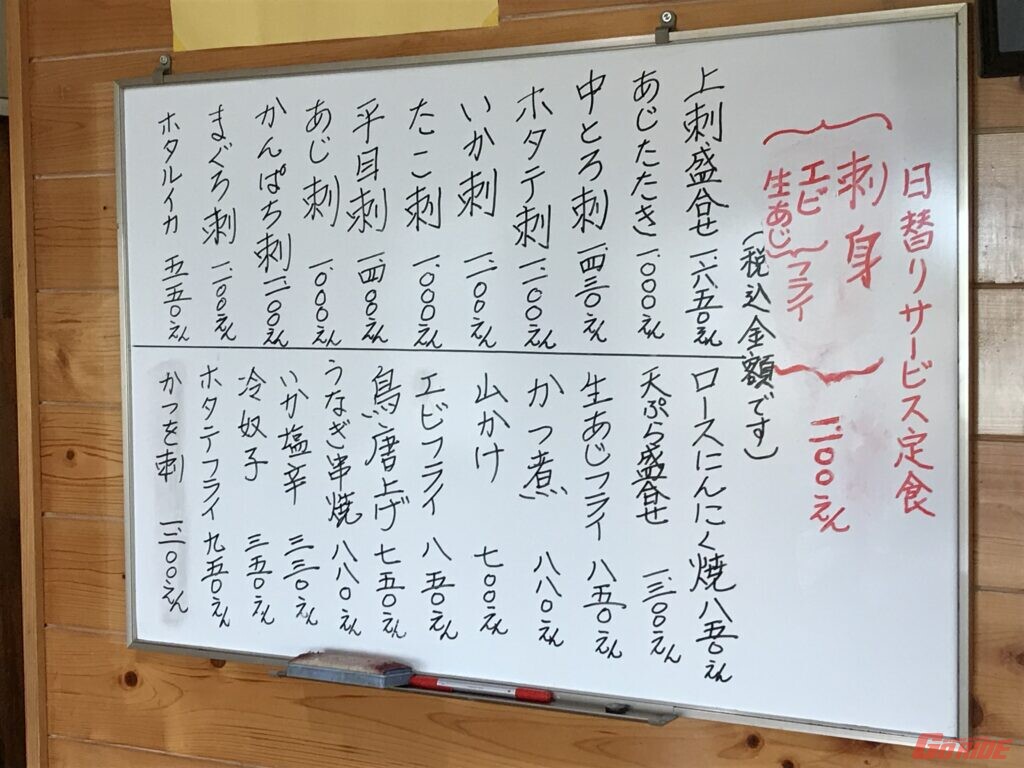 日替りサービス定食
刺身
エビ
生あじ
フライ
一、一〇〇えん
(税込金額です)
上刺盛合せ 一、六五〇えん
あじたたき 一、〇〇〇えん
中とろ刺 一、四三〇えん
ホタテ刺 一、一〇〇えん
いか刺 一、一〇〇えん
たこ刺 一、〇〇〇えん
平目刺 一、四〇〇えん
あじ刺 一、〇〇〇えん
かんぱち刺 一、一〇〇えん
まぐろ刺 一、一〇〇えん
ホタルイカ 五五〇えん
ロースにんにく焼 八五〇えん
天ぷら盛合せ 一、三〇〇えん
生あじフライ 八五〇えん
かつ煮 八八〇えん
山かけ 七〇〇えん
エビフライ 八五〇えん
鳥唐上げ 七五〇えん
うなぎ串焼 八八〇えん
いか塩辛 三三〇えん
冷奴子 三五〇えん
ホタテフライ 九五〇えん
かつを刺
GORIDE